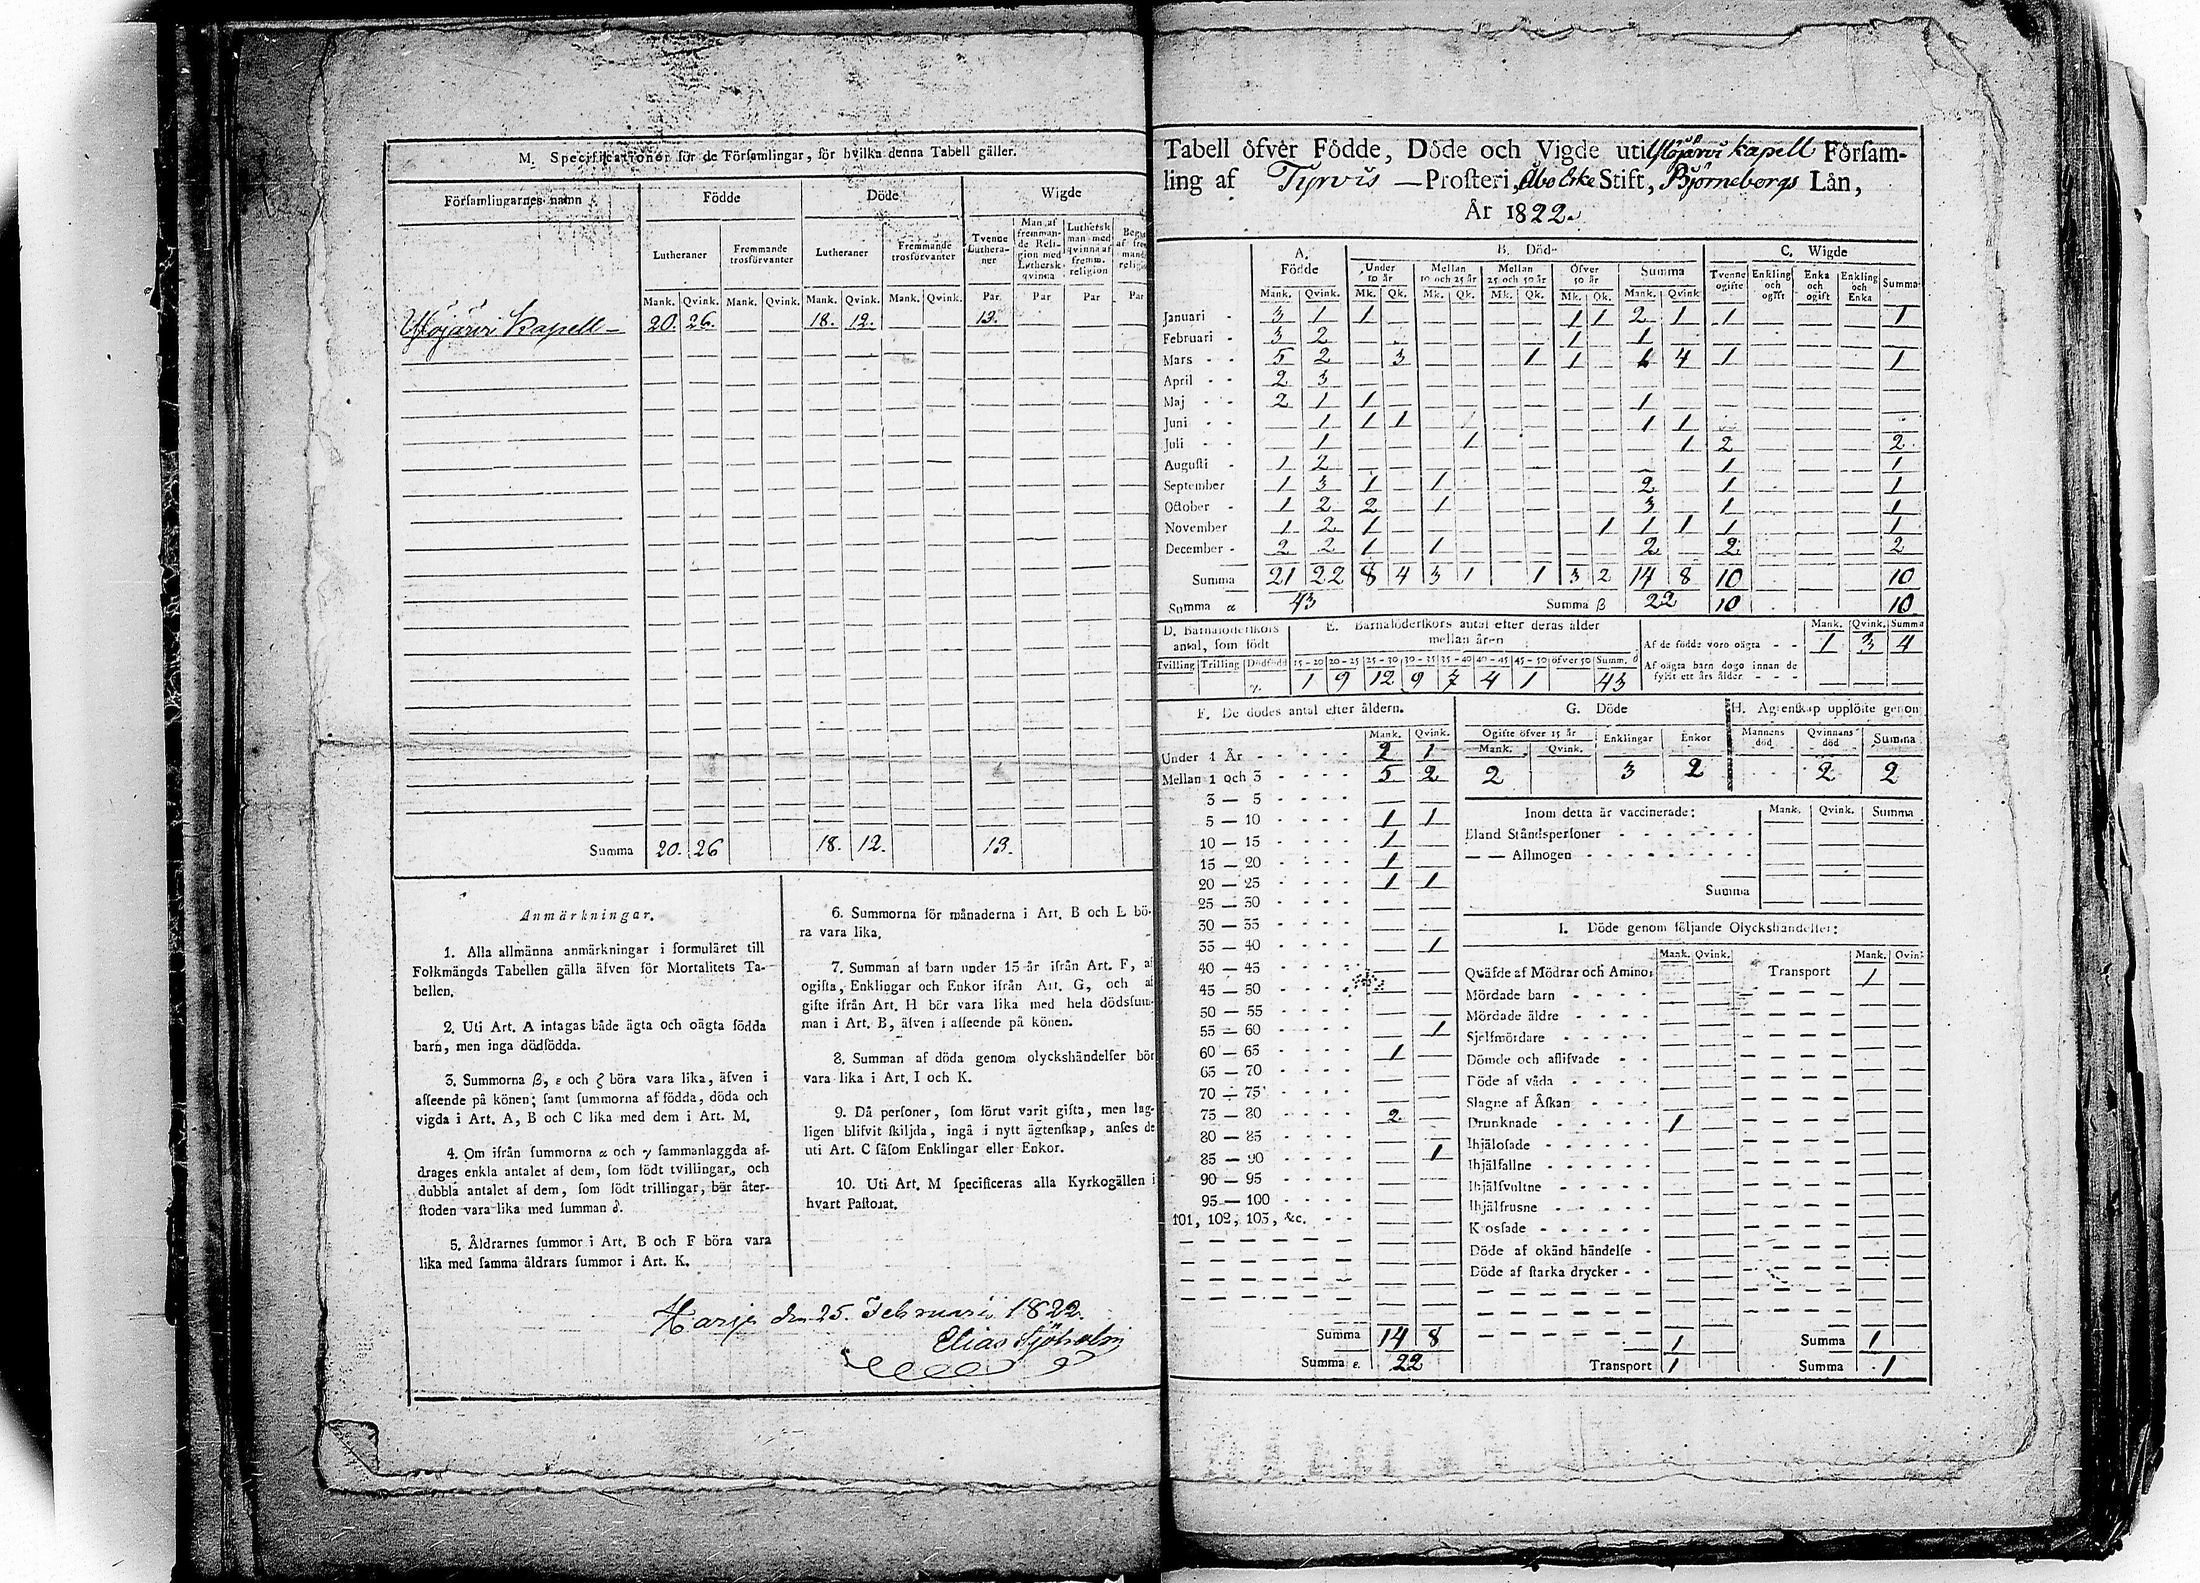 M. Specificationer för de Församlingar, för hvilka denna Tabell gäller.
Församlingarnes namn Födde Döde Wigde
Lutheraner Fremmande trosförvanter Lutheraner Fremmande trosförvanter Tvenne Lutheraner Man af fremmande Religion med Luthersk qvinna Luthersk man med qvinna af fremm. religion
Mank. Qvink. Mank. Qvink. Mank. Qvink. Mank. Qvink. Par Par Par Par
Ylöjärvi Kapell 20. 26. 18. 12. 13.
Summa 20. 26 18. 12. 13.
Anmärkningar.
1. Alla allmänna anmärkningar i formuläret till
Folkmängds Tabellen gälla äfven för Mortalitets Ta-
bellen.
2. Uti Art. A intagas både ägta och oägta födda
barn, men inga dödfödda.
3. Summorna β, ε och ζ böra vara lika, äfven i
afseende på könen; samt summorna af födda, döda och
vigda i Art. A, B och C lika med dem i Art. M.
4. Om ifrån summorna α och γ sammanlaggda af-
drages enkla antalet af dem, som födt tvillingar, och
dubbla antalet af dem, som födt trillingar, bär åter-
stoden vara lika med summan δ.
5. Åldrarnes summor i Art. B och F böra vara
lika med samma åldrars summor i Art. K.
6. Summorna för månaderna i Art. B och L bö-
ra vara lika.
7. Summan af barn under 15 år ifrån Art. F, af
ogifta, Enklingar och Enkor ifrån Art. G, och af
gifte ifrån Art. H bör vara lika med hela dödssum-
man i Art. B, äfven i afseende på könen.
8. Summan af döda genom olyckshändelser bör
vara lika i Art. I och K.
9. Då personer, som förut varit gifta, men lag-
ligen blifvit skiljda, ingå i nytt ägtenskap, anses de
uti Art. C såsom Enklingar eller Enkor.
10. Uti Art. M specificeras alla Kyrkogällen i
hvart Pastorat.
Harju den 25. Februari 1822.
Elias Sjöholm
Tabell öfver Födde, Döde och Vigde uti Ylöjärvi Kapell Försam-
ling af Tyrvis Prosteri, Åbo Erke Stift, Björneborgs Län,
År 1822.
A. Födde B. Död C. Wigde
Under 10 år Mellan 10 och 25 år Mellan 25 och 50 år Öfver 50 år Summa Tvenne ogifte Enkling och ogift Enka och ogift Enkling och Enka Summa
Mank. Qvink. Mk. Qk. Mk. Qk. Mk. Qk. Mk. Qk. Mank. Qvink
Januari 3 1 1 1 1 2 1 1 1
Februari 3 2 1 1
Mars 5 2 3 1 1 4 1 1
April 2 3
Maj 2 1 1 1
Juni 1 1 1 1 1
Juli 1 1 1 2 2
Augusti 1 2 1 1
September 1 3 1 1 2 1 1
October 1 2 2 1 3 1 1
November 1 2 1 1 1 1 1 1
December 2 2 1 1 2 2 2
Summa 21 22 8 4 3 1 1 3 2 14 8 10 10
Summa α 43 Summa β 22 10 10
D. Barnaföderskors antal, som födt
Tvilling Trilling Dödfödd
E. Barnaföderskors antal efter deras ålder mellan åren
15-20 20-25 25-30 30-35 35-40 40-45 45-50 öfver 50 Summ. δ
1 9 12 9 7 4 1 43
Mank. Qvink. Summa
Af de födde voro oägta 1 3 4
Af oägta barn dogo innan de
fyllt ett års ålder
F. De dödes antal efter åldern.
Mank. Qvink.
Under 1 År 2 1
Mellan 1 och 3 5 2
3 — 5
5 — 10 1 1
10 — 15 1
15 — 20 1
20 — 25 1 1
25 — 30
30 — 35
35 — 40 1
40 — 45
45 — 50
50 — 55
55 — 60 1
60 — 65 1
65 — 70
70 — 75
75 — 80 2
80 — 85
85 — 90 1
90 — 95
95 — 100
101, 102, 103, &c.
Summa 14 8
Summa ε. 22
G. Döde
Ogifte öfver 15 år Enklingar Enkor
Mank. Qvink.
2 3 2
H. Ägtenskap upplöste genom
Mannens död Qvinnans död Summa
2 2
Inom detta år vaccinerade: Mank. Qvink. Summa
Bland Ståndspersoner
— — Allmogen
Summa
I. Döde genom följande Olyckshändelser:
Mank. Qvink. Mank. Qvink
Qväfde af Mödrar och Ammor Transport 1
Mördade barn
Mördade äldre
Sjelfmördare
Dömde och aflifvade
Döde af våda
Slagne af Åskan
Drunknade 1
Ihjälosade
Ihjälfallne
Ihjälsvultne
Ihjälfrusne
Krossade
Döde af okänd händelse
Döde af starka drycker
1 Summa 1
Transport 1 Summa 1